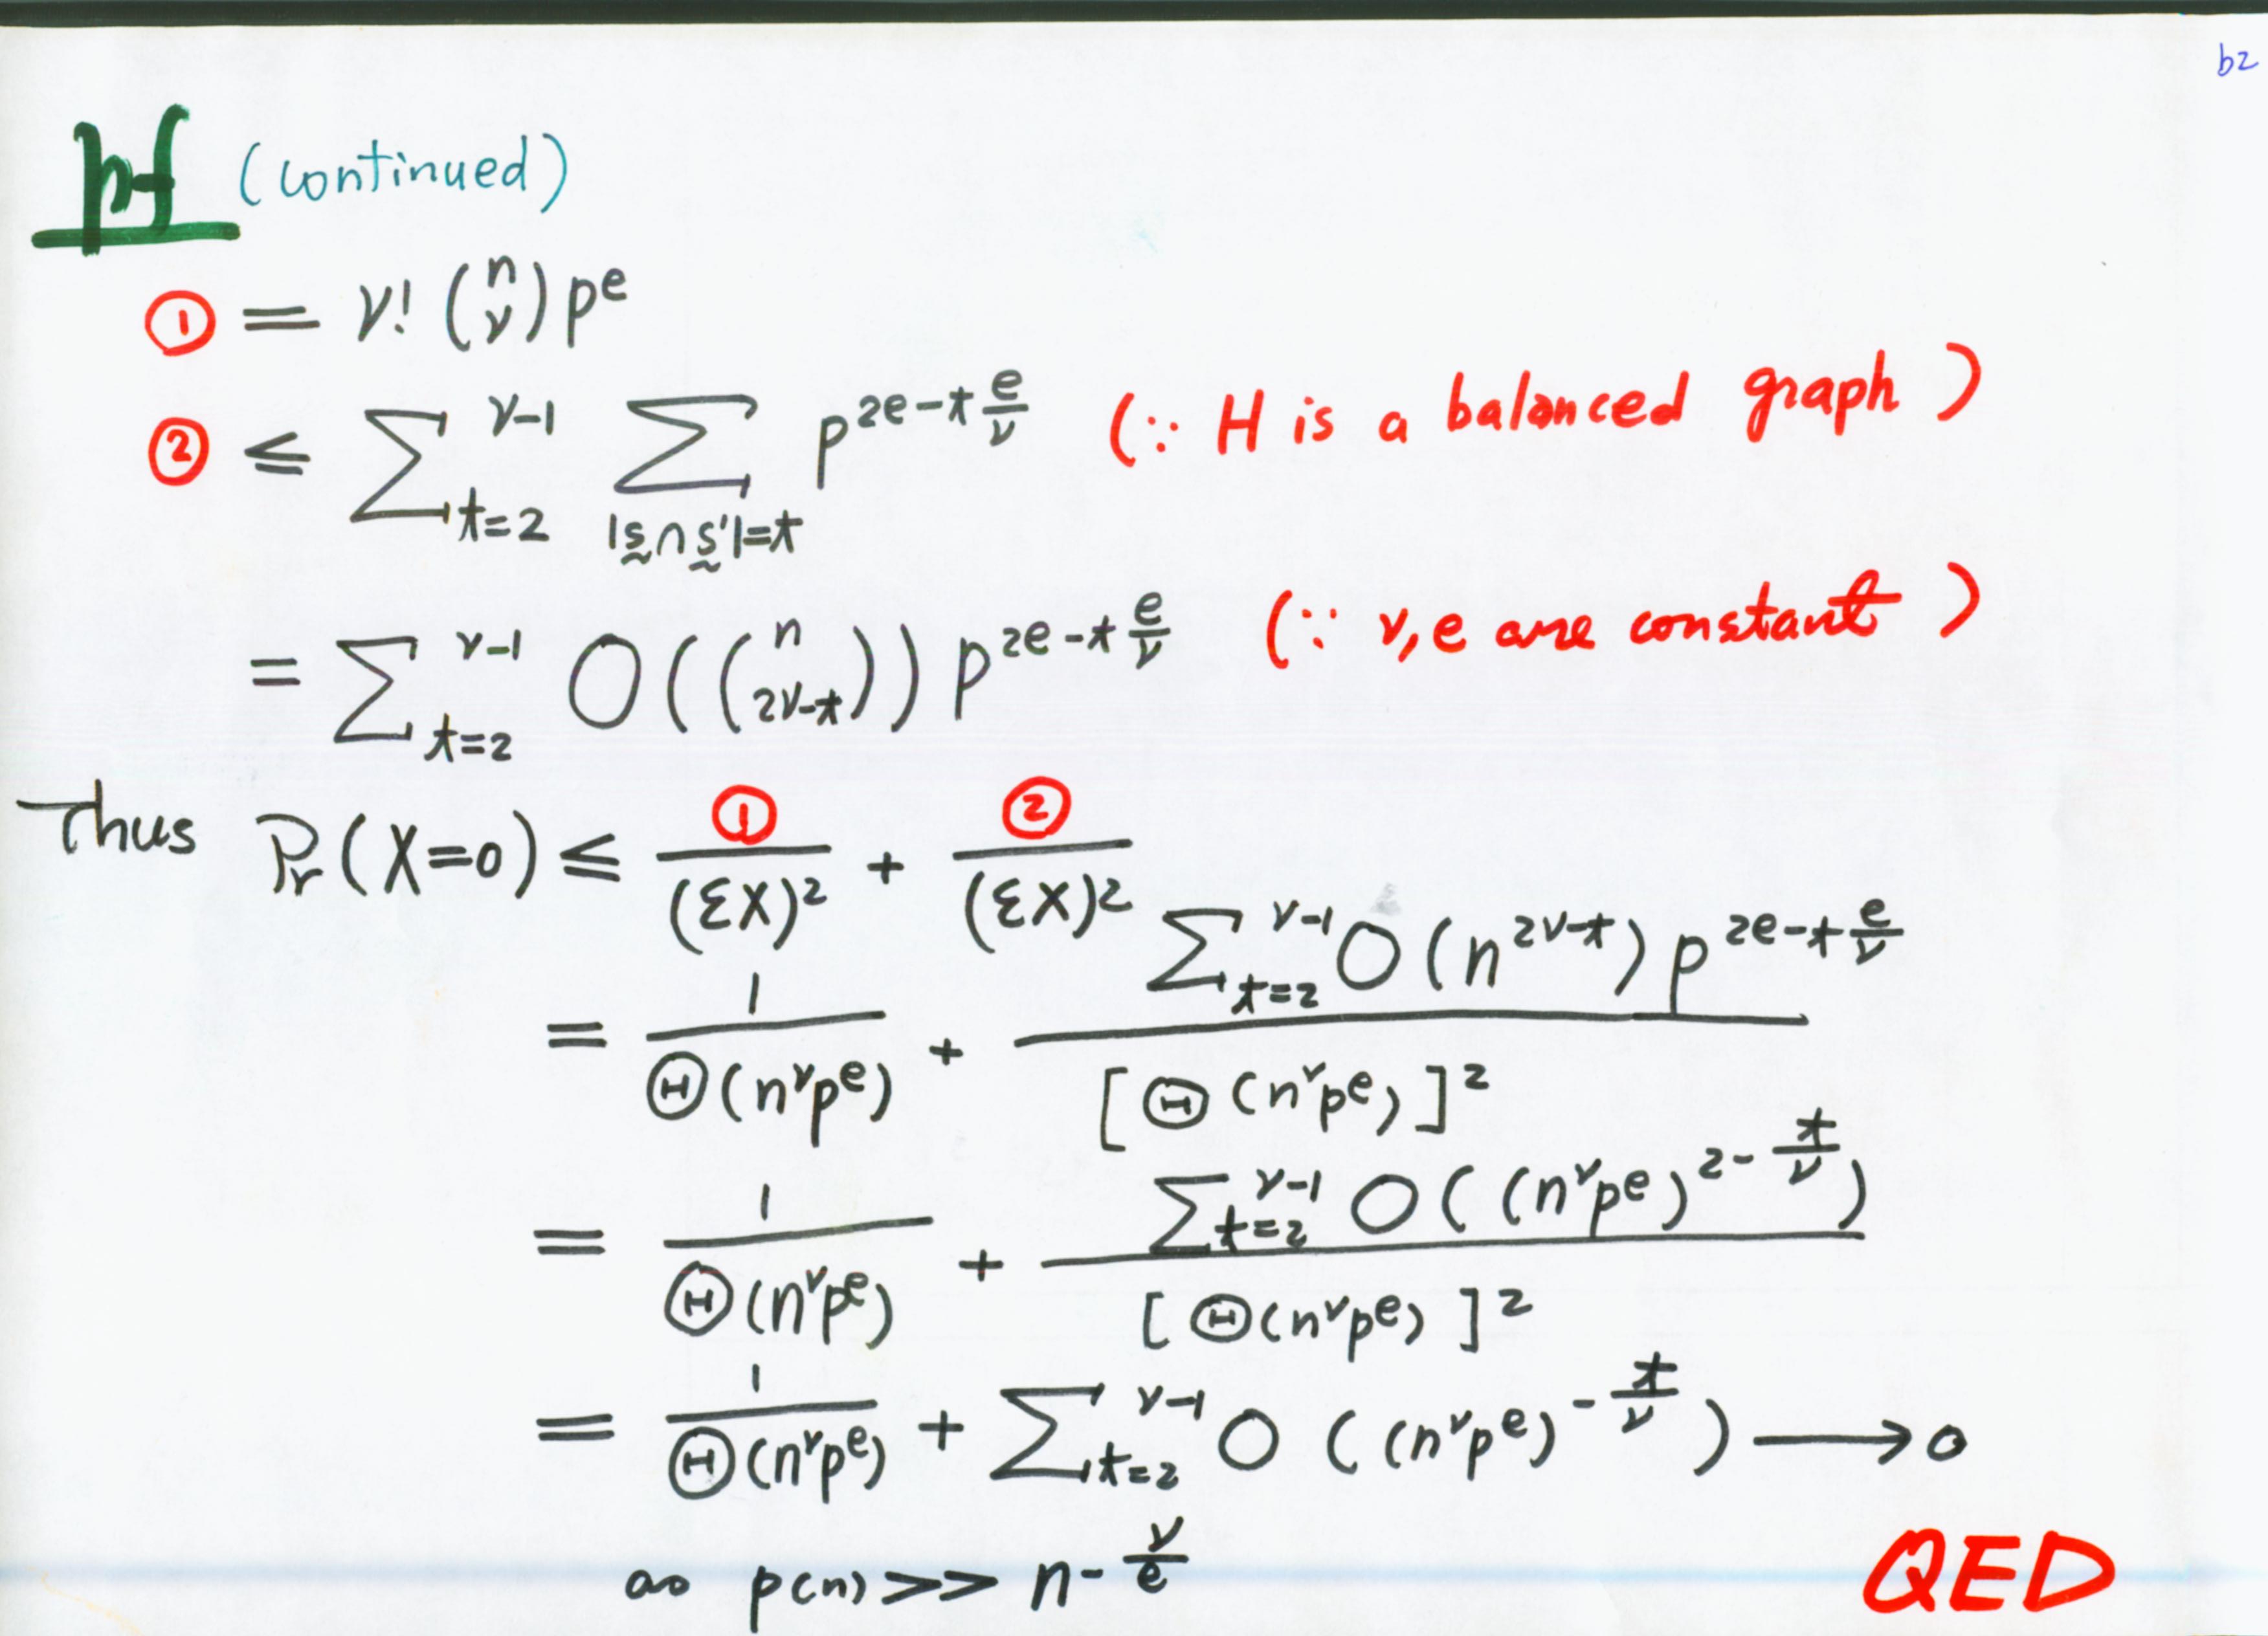 b2
pf (continued)
① = ν! (n ν) p^e
② ≤ Σ_{t=2}^{ν-1} Σ_{|s∩s'|=t} p^{2e-t e/ν} (∵ H is a balanced graph)
= Σ_{t=2}^{ν-1} O((n 2ν-t)) p^{2e-t e/ν} (∵ ν,e are constant)
Thus Pr(X=0) ≤ ①/(ƐX)² + ②/(ƐX)²
= 1/Θ(n^ν p^e) + Σ_{t=2}^{ν-1} O(n^{2ν-t}) p^{2e-t e/ν} / [Θ(n^ν p^e)]²
= 1/Θ(n^ν p^e) + Σ_{t=2}^{ν-1} O((n^ν p^e)^{2-t/ν}) / [Θ(n^ν p^e)]²
= 1/Θ(n^ν p^e) + Σ_{t=2}^{ν-1} O((n^ν p^e)^{-t/ν}) → 0
as p(n) >> n^{-ν/e}
QED